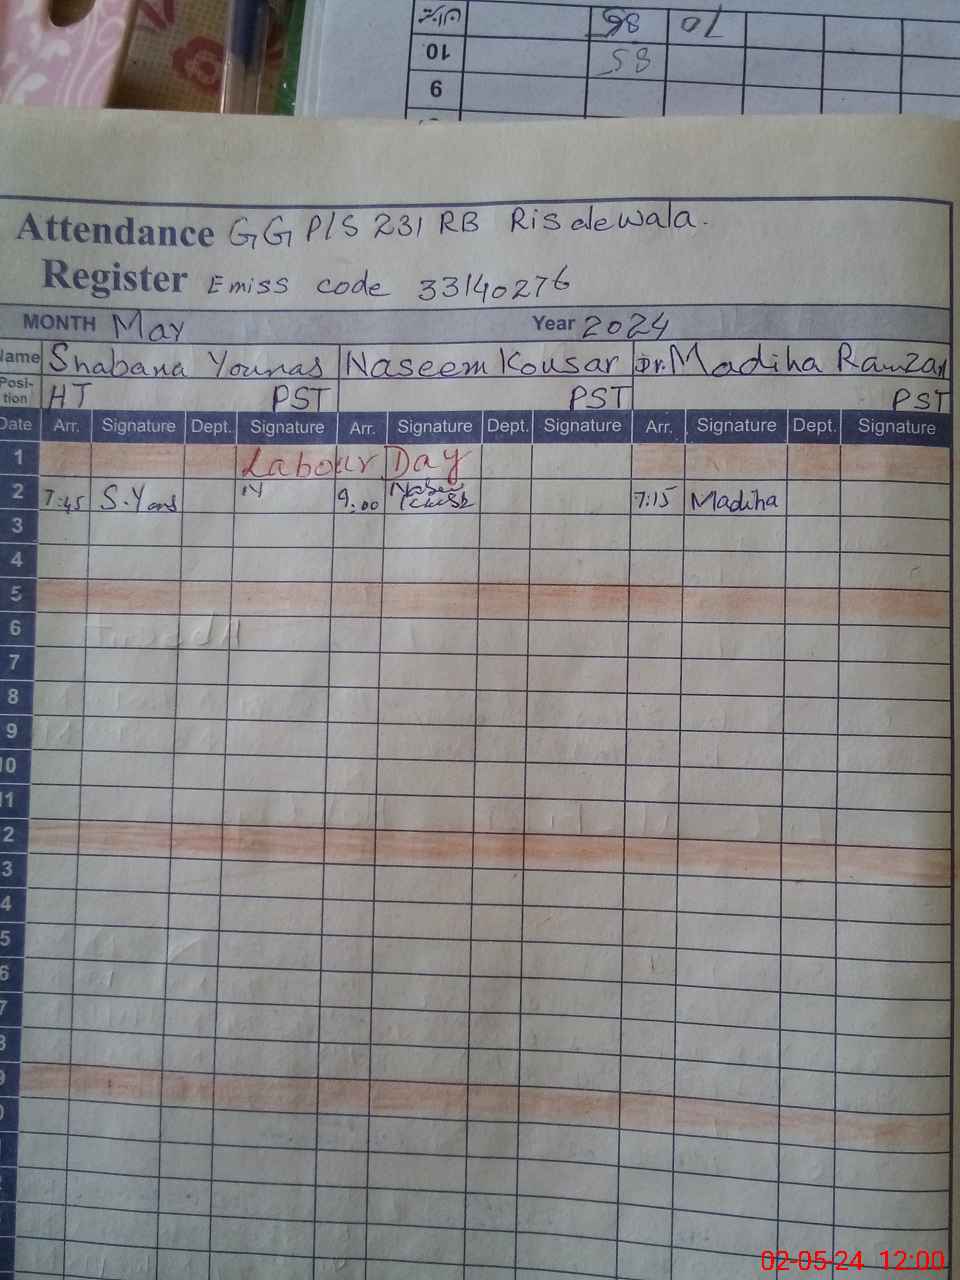 98 70
10 58
9
Attendance GGP/S 231 RB Risalewala.
Register Emiss code 33140276
MONTH May Year 2024
Name Shabana Younas Naseem Kousar Dr. Madiha Ramzan
Posi-tion HT PST PST PST
Date Arr. Signature Dept. Signature Arr. Signature Dept. Signature Arr. Signature Dept. Signature
1 Labour Day
2 7:45 9:00 7:15 Madiha
3
4
5
6
7
8
9
10
11
2
3
4
5
6
7
8
9
0
02-05-24 12:00